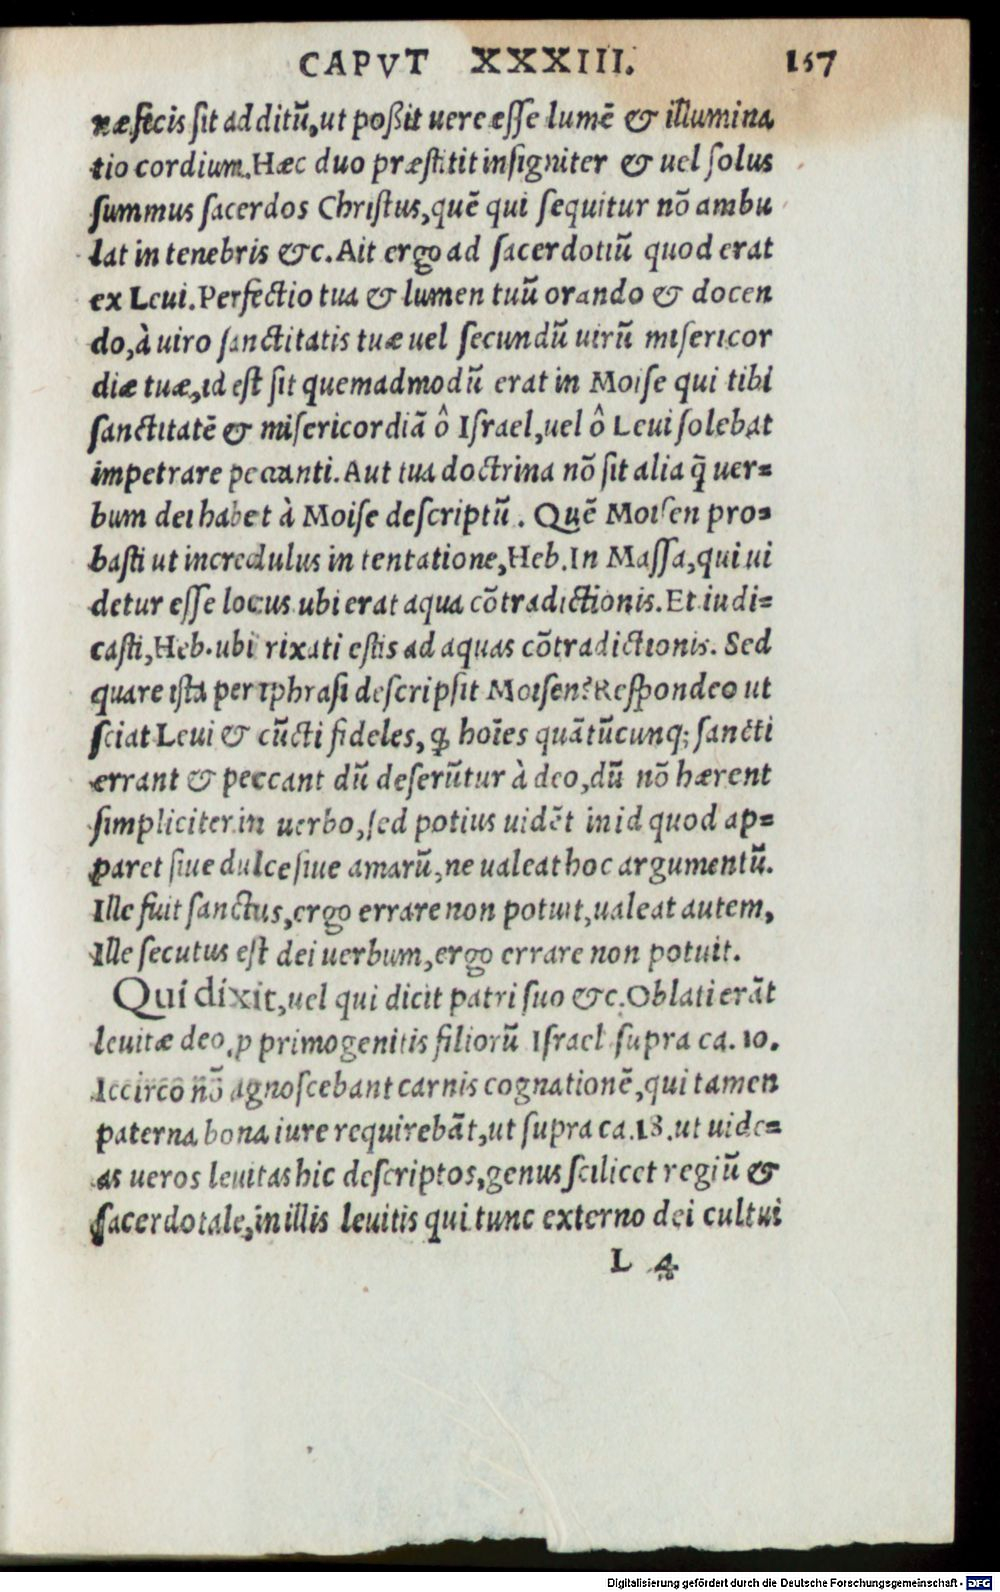 CAPVT XXXIII. 157
næ fecis sit additũ, ut poßit uere esse lumẽ & illumina
tio cordium. Hæc duo præstitit insigniter & uel solus
summus sacerdos Christus, quẽ qui sequitur nõ ambu
lat in tenebris &c. Ait ergo ad sacerdotiũ quod erat
ex Leui. Perfectio tua & lumen tuũ orando & docen
do, à uiro sanctitatis tuæ uel secundũ uirũ misericor
diæ tuæ, id est sit quemadmodũ erat in Moise qui tibi
sanctitatẽ & misericordiã ô Israel, uel ô Leui solebat
impetrare peccanti. Aut tua doctrina nõ sit alia q̃ uer=
bum dei habet à Moise descriptũ. Quẽ Moisen pro=
basti ut incredulus in tentatione, Heb. In Massa, qui ui
detur esse locus ubi erat aqua cõtradictionis. Et iudi=
casti, Heb. ubi rixati estis ad aquas cõtradictionis. Sed
quare ista periphrasi descripsit Moisen? Respondeo ut
sciat Leui & cũcti fideles, ꝙ hoĩes quãtũcunq; sancti
errant & peccant dũ deserũtur à deo, dũ nõ hærent
simpliciter in uerbo, sed potius uidẽt in id quod ap=
paret siue dulce siue amarũ, ne ualeat hoc argumentũ.
Ille fuit sanctus, ergo errare non potuit, ualeat autem,
Ille secutus est dei uerbum, ergo errare non potuit.
Qui dixit, uel qui dicit patri suo &c. Oblati erãt
leuitæ deo ꝓ primogenitis filiorũ Israel supra ca. 10.
Iccirco nõ agnoscebant carnis cognationẽ, qui tamen
paterna bona iure requirebãt, ut supra ca. 18. ut uide=
as ueros leuitas hic descriptos, genus scilicet regiũ &
sacerdotale, in illis leuitis qui tunc externo dei cultui
L 4
Digitalisierung gefördert durch die Deutsche Forschungsgemeinschaft - DFG